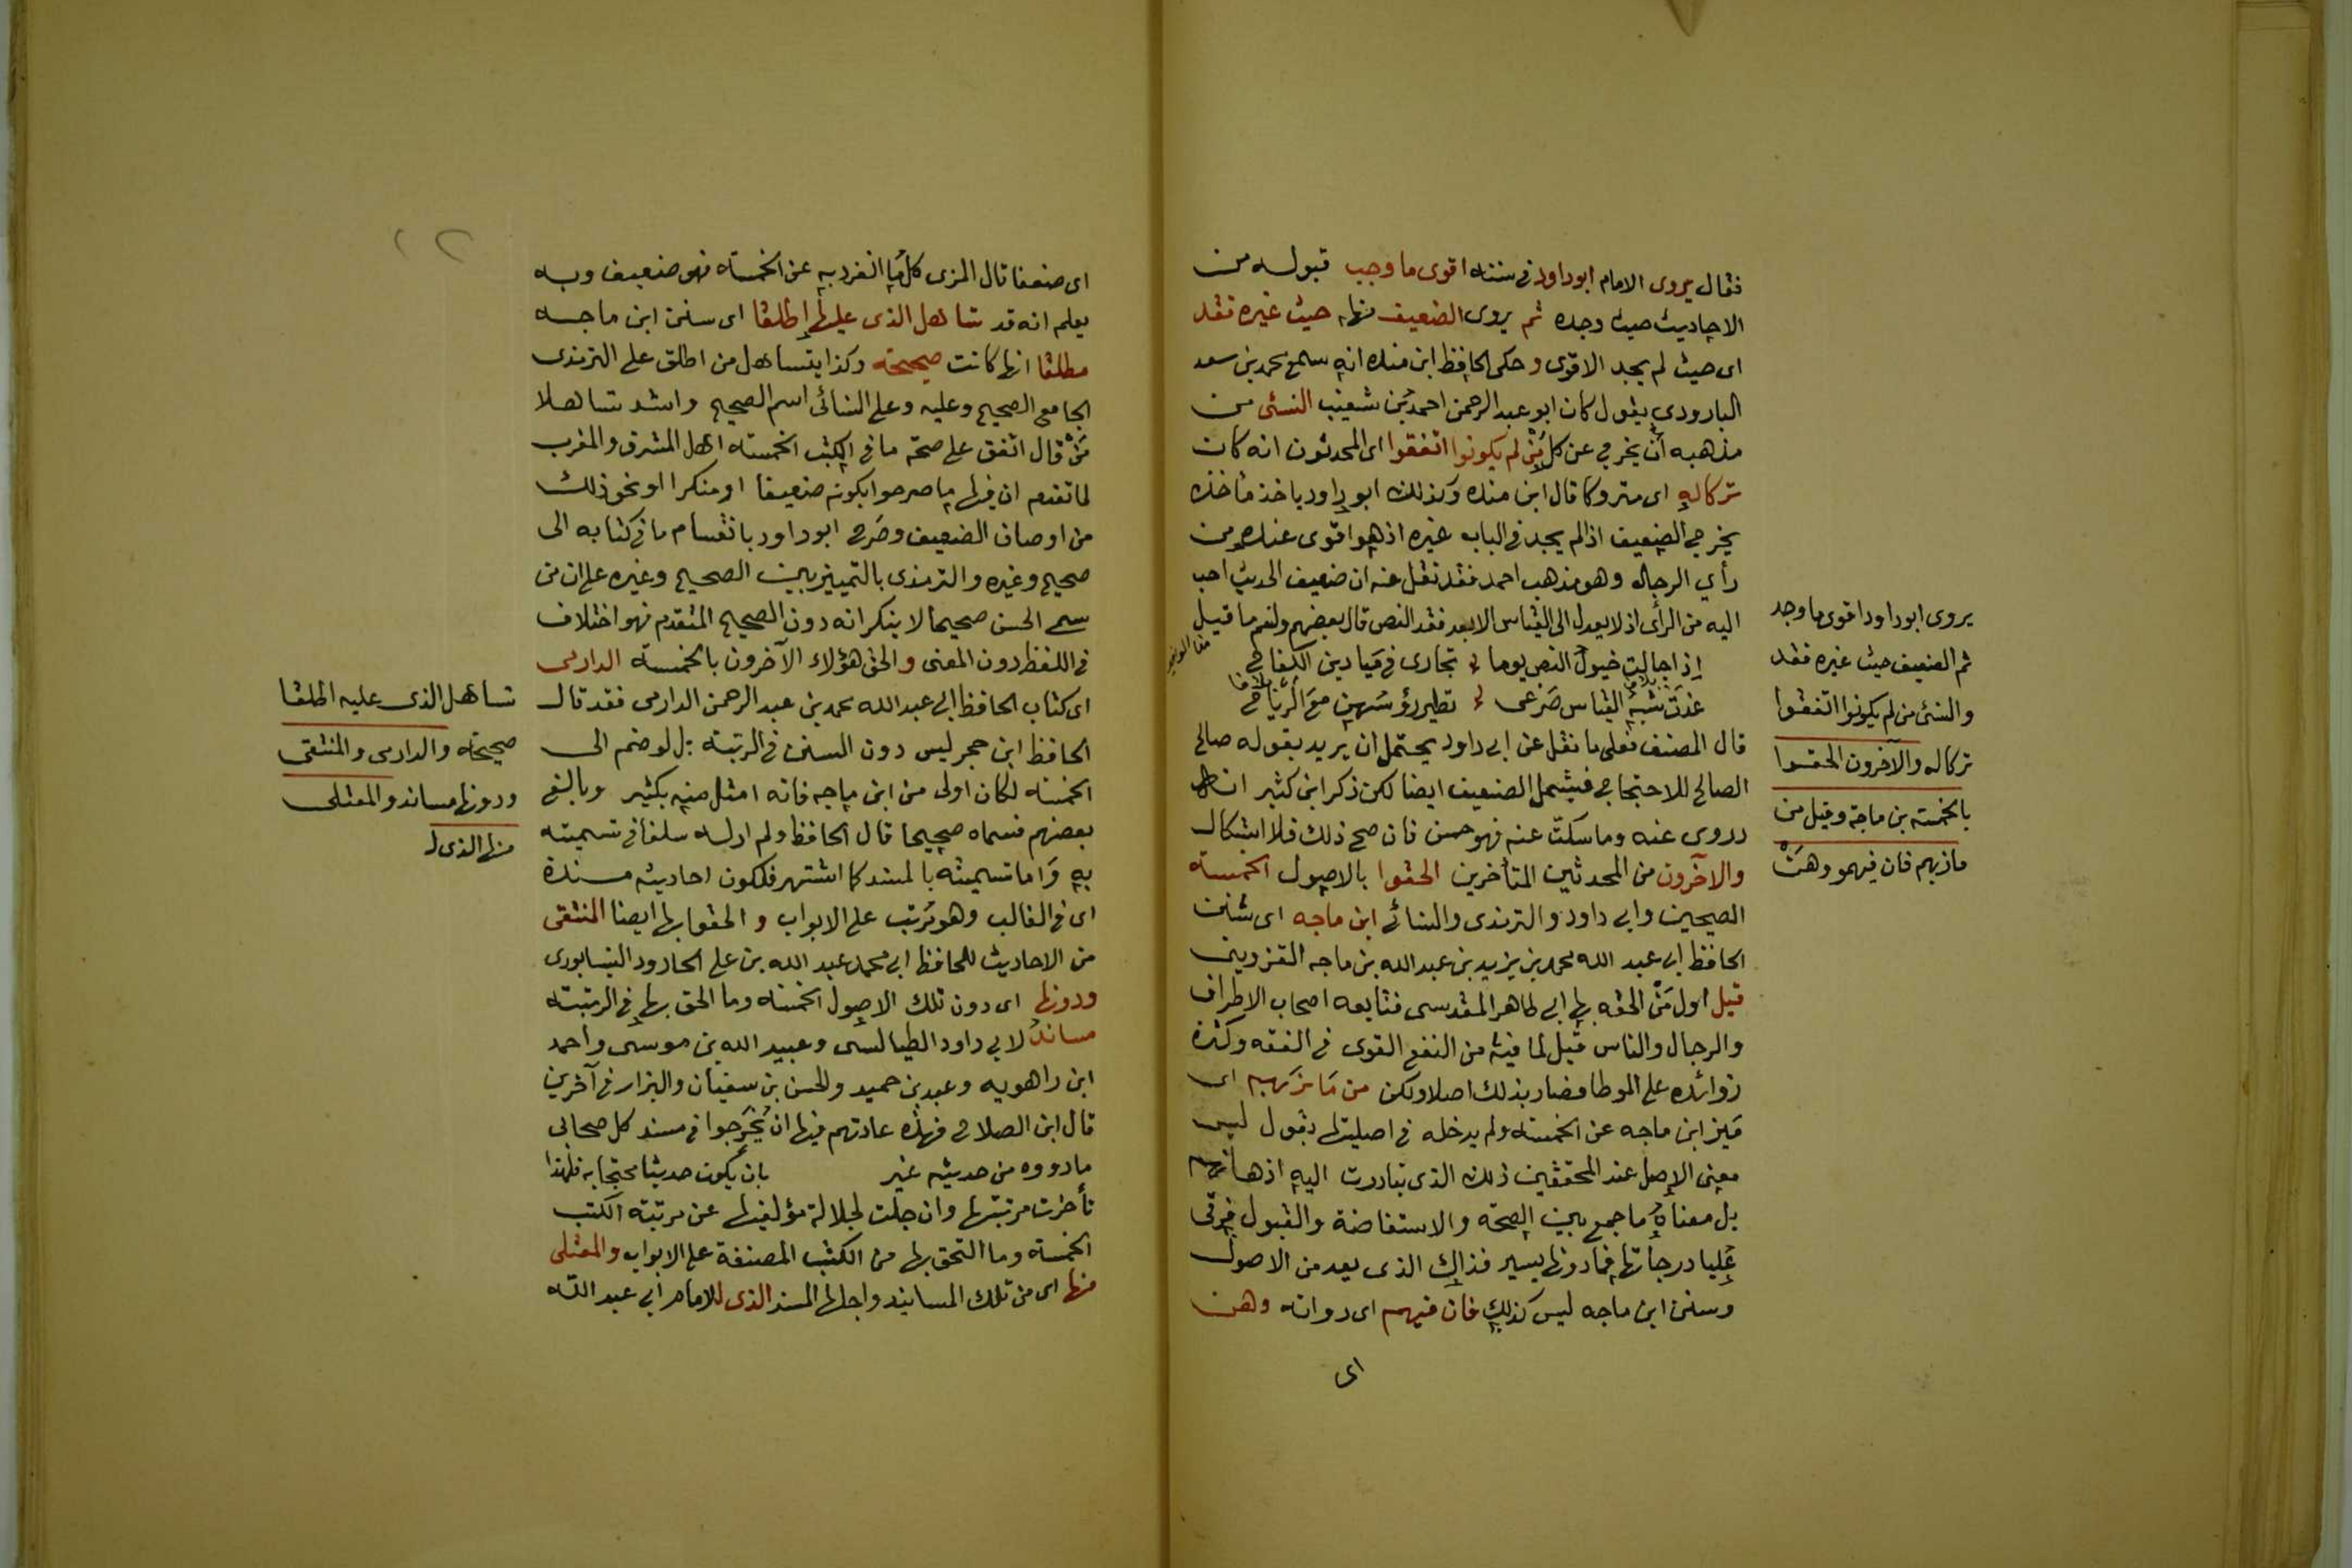 فقال يروى الامام ابوداود في سننه اقوى ما وجب قبوله من
الاحاديث حيث وجده ثم يروى الضعيف منها حيث غيره فقد
اى حيث لم يجد الاقوى وحكى الحافظ ابن منده انه سمع محمد بن سعد
البارودي يقول كان ابو عبد الرحمن احمد بن شعيب النسئى من
مذهبه أن يخرج عن كل من لم يكونوا اتفقوا اى المحدثون انه كان
تركا له اى متروكا قال ابن منده وكذلك ابو داود ياخذ مأخذه
يخرج الضعيف اذا لم يجد في الباب غيره اذ هو اقوى عنده من
رأي الرجال وهو مذهب احمد فقد نقل عنه ان ضعيف الحديث احب
اليه من الرأى اذ لا يعدل الى القياس الا بعد فقد النص قال بعضهم ولنعم ما قيل
إذا جالت خيول النص يوما تجارى في ميادين الكفاح
غدت شبه القياس صرعى تطير رؤسهن مع الرياح
قال المصنف فعلى ما نقل عن ابى داود يحتمل ان يريد بقوله صالح
الصالح للاحتجاج فيشمل الضعيف ايضا لكن ذكر ابن كثير انه
روى عنه وما سكت عنه فهو حسن فان صح ذلك فلا اشكال
والآخرون من المحدثين المتأخرين الحقوا بالاصول الخمسة
الصحيحين وابى داود والترمذى والنسائى ابن ماجه اى سنن
الحافظ ابى عبد الله محمد بن يزيد بن عبد الله بن ماجه القزوينى
قيل اول من الحقه بها ابى طاهر المقدسى فتابعه اصحاب الاطراف
والرجال والناس قيل لما فيه من النفع القوى في الفقه وكثرة
زوائده على الموطا فصار بذلك اصلا ولكن من مازبهم اى
ميز ابن ماجه عن الخمسة ولم يدخله في اصليتها بقول ليس
معنى الاصل عند المحققين ذلك الذى تبادرت اليه اذهانهم
بل معناه ما جمع بين الصحة والاستفاضة والقبول فى
عليا درجاتها فما دونها بيسير فذاك الذى يعد من الاصول
وسنن ابن ماجه ليس كذلك فان فيهم اى رواته وهن
اى
يروى ابوداود اقوى ما وجد
ثم الضعيف حيث غيره فقد
والنسئى من لم يكونوا اتفقوا
تركا له والآخرون الحقوا
بالخمسة بن ماجة وقيل من
مازبهم فان فيهمو وهن
اى ضعفا قال المزى كل ما انفرد به عن الخمسة فهو ضعيف وبه
يعلم انه قد تساهل الذى عليها إطلقا اى سنن ابن ماجه
مطلقا انها كانت صحيحة وكذا يتساهل من اطلق على الترمذى
الجامع الصحيح وعليه وعلى النسائى اسم الصحيح واشد تساهلا
من قال اتفق على صحة ما في الكتب الخمسة اهل المشرق والمغرب
لما تقدم ان فيها ما صرحوا بكونه ضعيفا او منكرا او نحو ذلك
من اوصاف الضعيف وصرح ابو داود بانقسام ما في كتابه الى
صحيح وغيره والترمذى بالتمييز بين الصحيح وغيره على ان من
سمى الحسن صحيحا لا ينكر انه دون الصحيح المتقدم فهو اختلاف
في اللفظ دون المعنى والحق هؤلاء الآخرون بالخمسة الدارمى
اى كتاب الحافظ ابى عبد الله محمد بن عبد الرحمن الدارمى فقد قال
الحافظ ابن حجر ليس دون السنن في الرتبة بل لو ضم الى
الخمسة لكان اولى من ابن ماجه فانه امثل منه بكثير وبالغ
بعضهم فسماه صحيحا قال الحافظ ولم ار له سلفا في تسميته
به وأما تسميته بالمسند كما اشتهر فلكون احاديثه مسندة
اى في الغالب وهو مرتب على الابواب و الحقوا بها ايضا المنتقى
من الاحاديث للحافظ ابى محمد عبد الله بن على الجارود النيسابورى
ودونها اى دون تلك الاصول الخمسة وما الحق بها في الرتبة
مساند لابى داود الطيالسى وعبيد الله بن موسى واحمد
ابن راهويه وعبد بن حميد والحسن بن سفيان والبزار في آخرين
قال ابن الصلاح فهذه عادتهم فيها ان يخرجوا في مسند كل صحابى
ما رووه من حديثه غير بان يكون حديثا محتجا به فلهذا
تأخرت مرتبتها وان جلت لجلالة مؤلفيها عن مرتبة الكتب
الخمسة وما التحق بها من الكتب المصنفة على الابواب والمعتلى
منها اى من تلك المسانيد واجلها المسند الذى للامام ابى عبد الله
تساهل الذى عليه اطلقا
صحيحة والدارمى والمنتقى
ودونها مساند والمعتلى
منها الذى ل